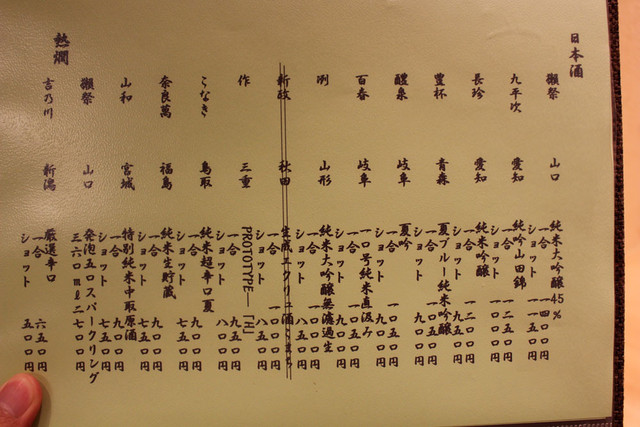 日本酒
獺祭 山口 純米大吟醸45%
一合 一四〇〇円
ショット 一一五〇円
九平次 愛知 純吟山田錦
一合 一二五〇円
ショット
長珍 愛知 純米吟醸
一合 一二〇〇円
ショット 九〇〇円
豊杯 青森 夏ブルー純米吟醸
一合 一〇五〇円
ショット 九〇〇円
醴泉 岐阜 夏吟
一合 一〇五〇円
ショット 九〇〇円
百春 岐阜 一口号純米直汲み
一合 一〇五〇円
ショット 九〇〇円
洌 山形 純米大吟醸無濾過生
一合
ショット
新政 秋田 生蔵エクリュ酒こまち
一合 一〇〇〇円
ショット 八五〇円
作 三重 PROTOTYPE―「H」
一合 九五〇円
ショット 八〇〇円
こなき 鳥取 純米超辛口夏
一合 九〇〇円
ショット 七五〇円
奈良萬 福島 純米生貯蔵
一合 九〇〇円
ショット 七五〇円
山和 宮城 特別純米中取原酒
一合 九〇〇円
ショット 七五〇円
獺祭 山口 発泡五〇スパークリング
三六〇ml 二七〇〇円
熱燗
吉乃川 新潟 厳選辛口
一合 六五〇円
ショット 五〇〇円